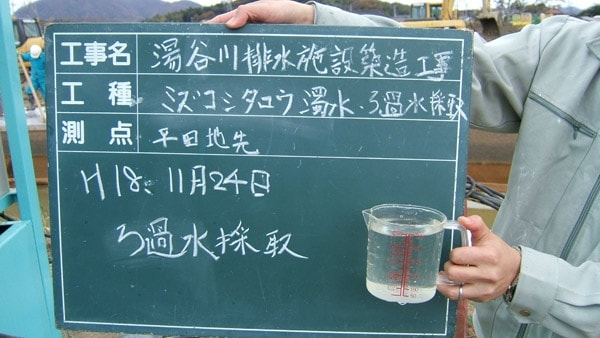 工事名 湯谷川排水施設築造工事
工種 ミズコシタロウ濁水・ろ過水採取
測点 平田地先
H18、11月24日
ろ過水採取